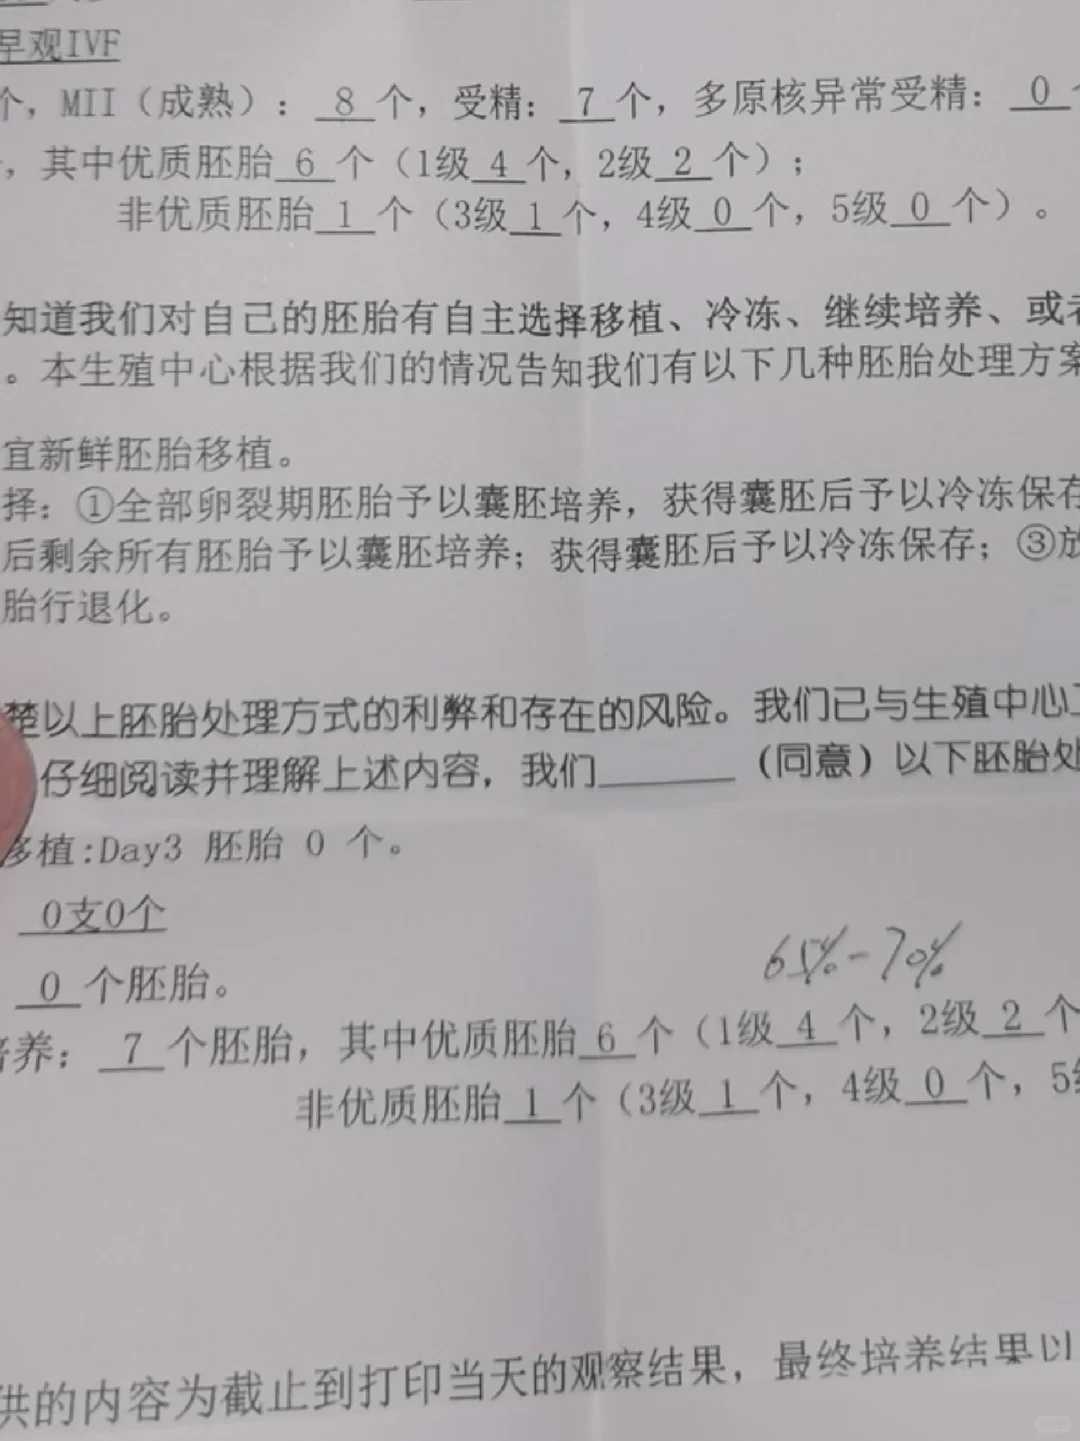 早观IVF
个，MII（成熟）：8个，受精：7个，多原核异常受精：0
，其中优质胚胎6个（1级4个，2级2个）；
非优质胚胎1个（3级1个，4级0个，5级0个）。
知道我们对自己的胚胎有自主选择移植、冷冻、继续培养、或
。本生殖中心根据我们的情况告知我们有以下几种胚胎处理方案
宜新鲜胚胎移植。
择：①全部卵裂期胚胎予以囊胚培养，获得囊胚后予以冷冻保存
后剩余所有胚胎予以囊胚培养；获得囊胚后予以冷冻保存；③放
胎行退化。
楚以上胚胎处理方式的利弊和存在的风险。我们已与生殖中心
仔细阅读并理解上述内容，我们______（同意）以下胚胎处
移植:Day3 胚胎 0 个。
0支0个
0个胚胎。
65%-70%
培养：7个胚胎，其中优质胚胎6个（1级4个，2级2个
非优质胚胎1个（3级1个，4级0个，5级
供的内容为截止到打印当天的观察结果，最终培养结果以